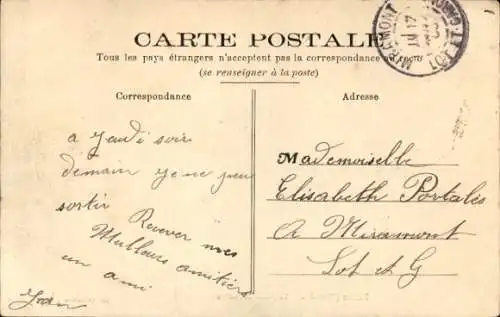 CARTE POSTALE
Tous les pays étrangers n'acceptent pas la correspondance au recto
(se renseigner à la poste)
Correspondance
Adresse
MIRAMONT
LOT ET
17
a Jeudi soir
demain je ne peu
sortir
Recever mes
Meilleurs amitiers
un ami
Jean
Mademoiselle
Elisabeth Portalès
A Miramont
Lot et G